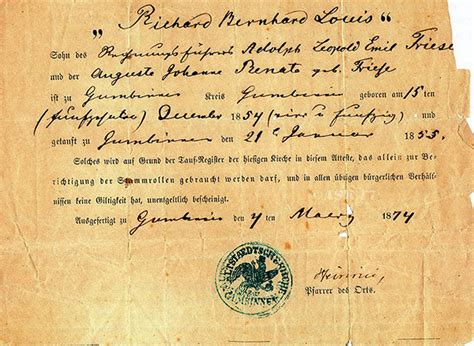 „Richard Bernhard Louis“
Sohn des Rechnungsführers Adolph Leopold Emil Friese
und der Auguste Johanne Renate geb. Friese
ist zu Gumbinnen Kreis Gumbinnen geboren am 15 ten
(fünfzehnten) December 1854 (vier u fünfzig) und
getauft zu Gumbinnen den 21t Januar 1855.
Solches wird auf Grund der Tauf-Register der hiesigen Kirche in diesem Atteste, das allein zur Be-
richtigung der Stammrollen gebraucht werden darf, und in allen übrigen bürgerlichen Verhält-
nissen keine Giltigkeit hat, unentgeltlich bescheinigt.
Ausgefertigt zu Gumbinnen den 4 ten Maerz 1874
ALTSTAEDTSCHE KIRCHE
GUMBINNEN
Pfarrer des Orts.